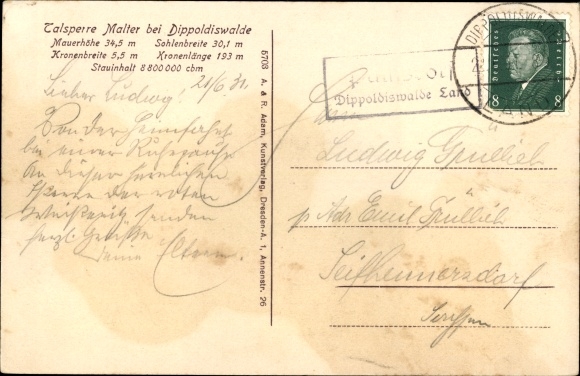 Talsperre Malter bei Dippoldiswalde
Mauerhöhe 34,5 m Sohlenbreite 30,1 m
Kronenbreite 5,5 m Kronenlänge 193 m
Stauinhalt 8 800 000 cbm
21/6.31.
Lieber Ludwig!
Von der Heimfahrt
bei einer Ruhepause
An dieser herrlichen
der
senden
herzl. Grüße
deine Eltern.
5703 A. & R. Adam, Kunstverlag, Dresden-A. 1, Annenstr. 26
Dippoldiswalde Land
DIPPOLDISWALDE
LAND
Deutsches Reich
8 8
Ludwig
p Adr Emil
Seifhennersdorf
Sachsen